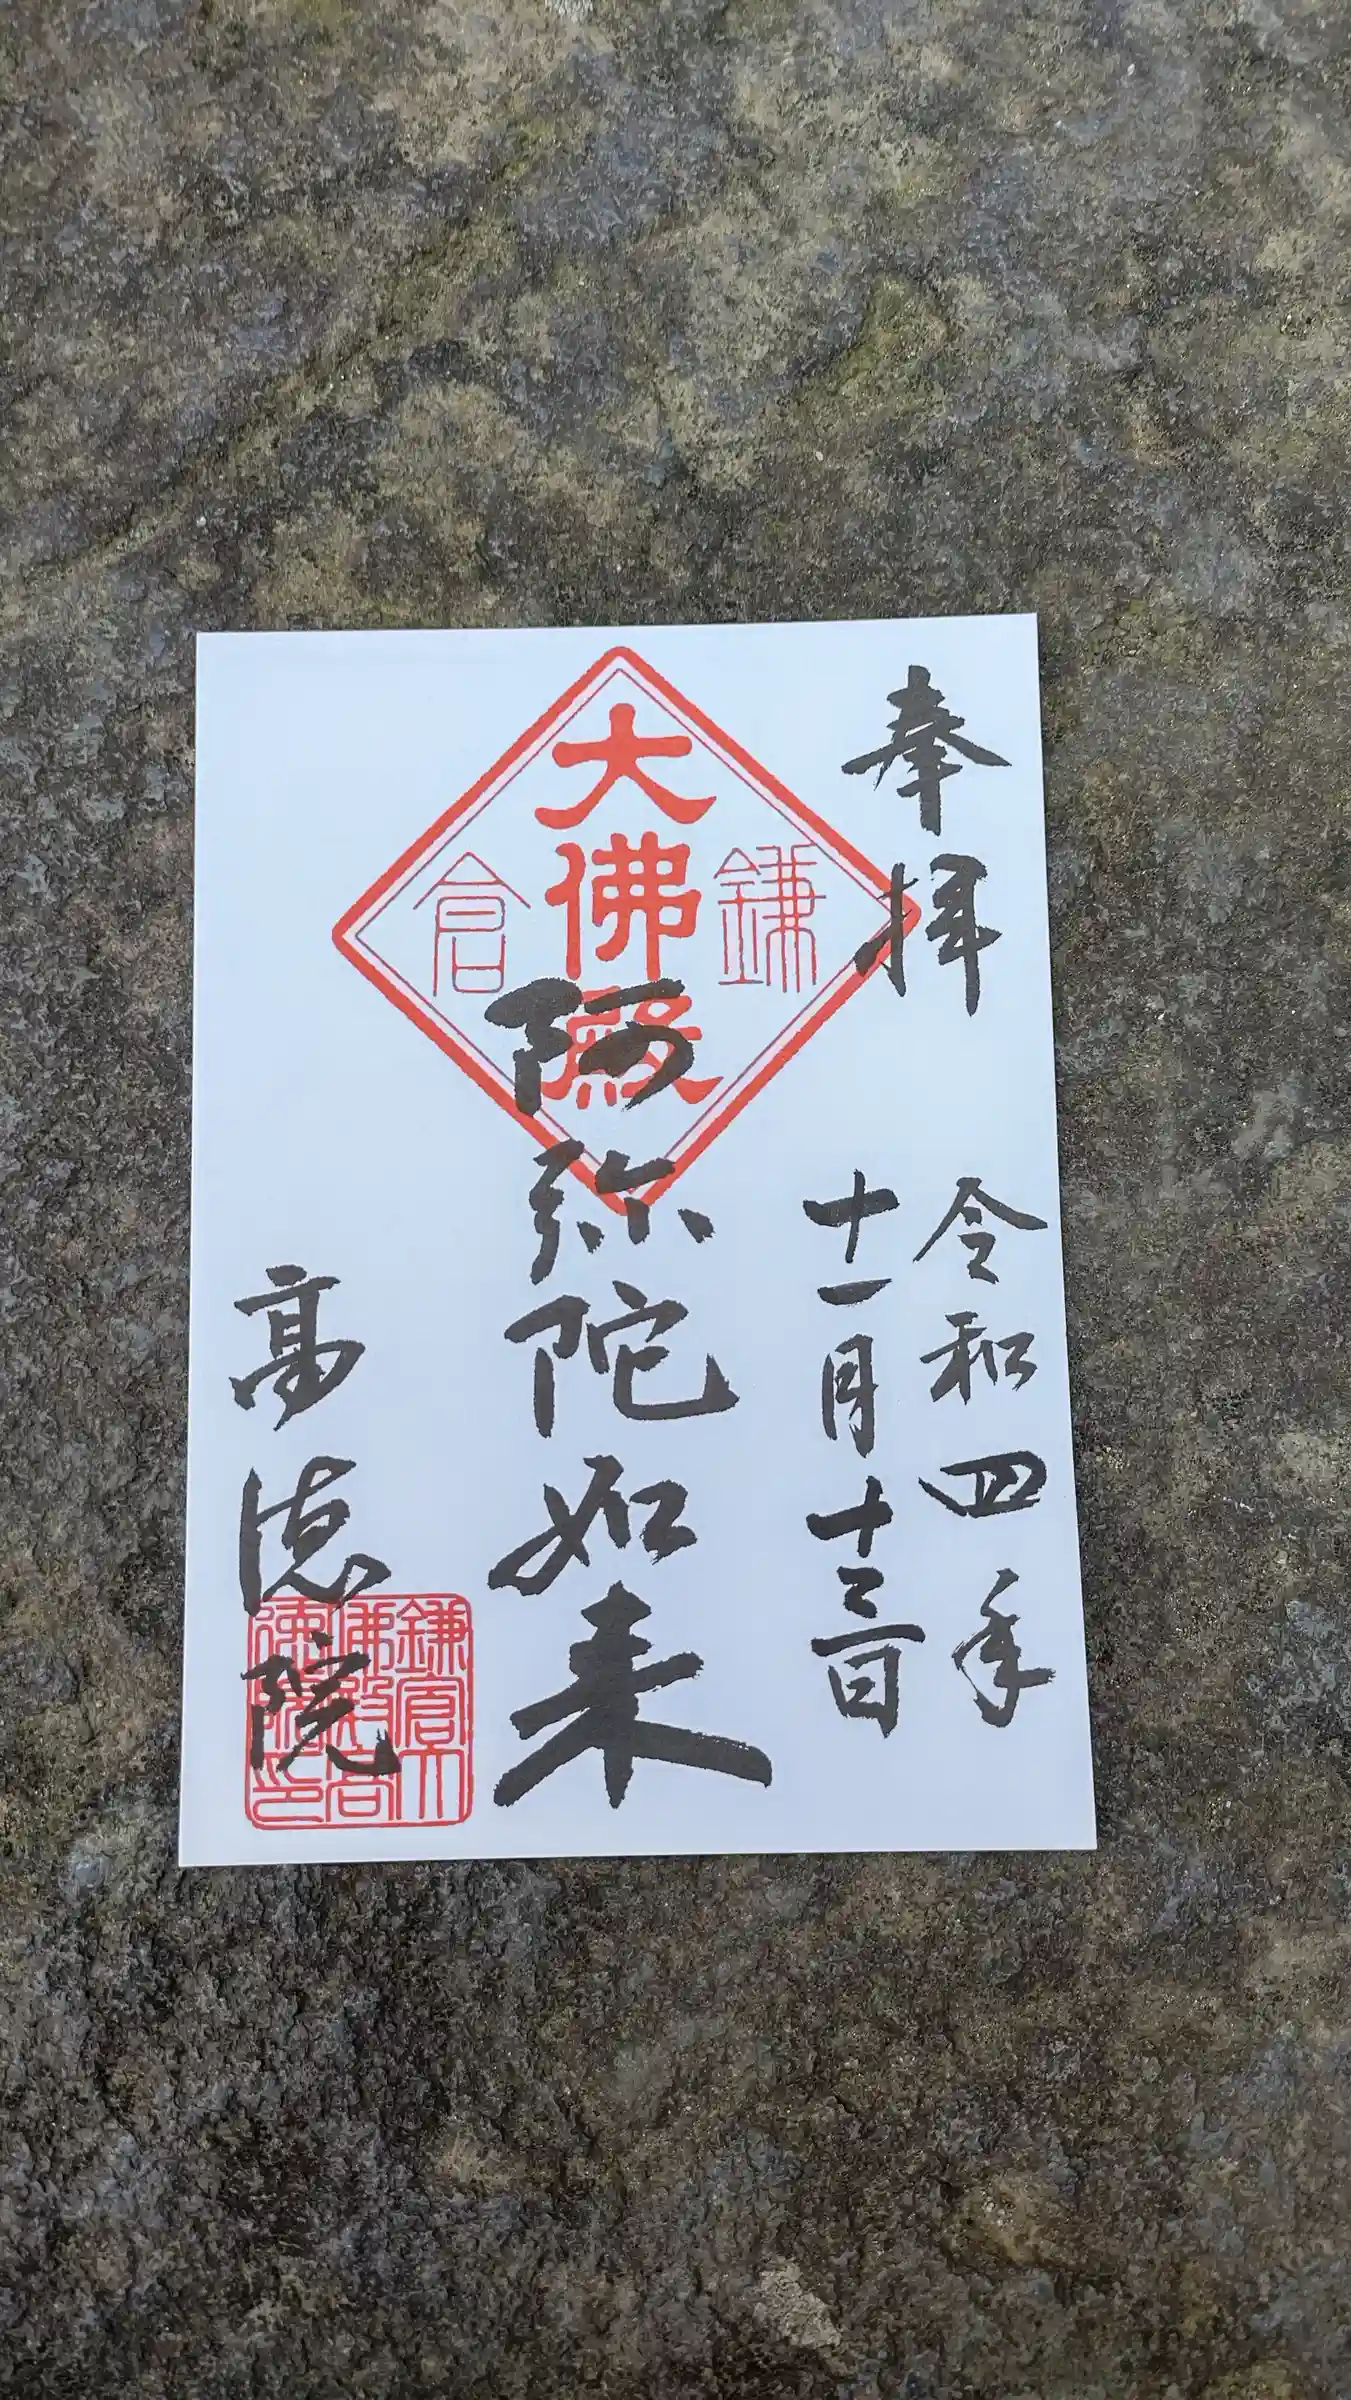 奉拝
令和四年
十一月十三日
鎌倉
大佛殿
阿弥陀如来
高徳院
鎌倉大
佛殿高
徳院印